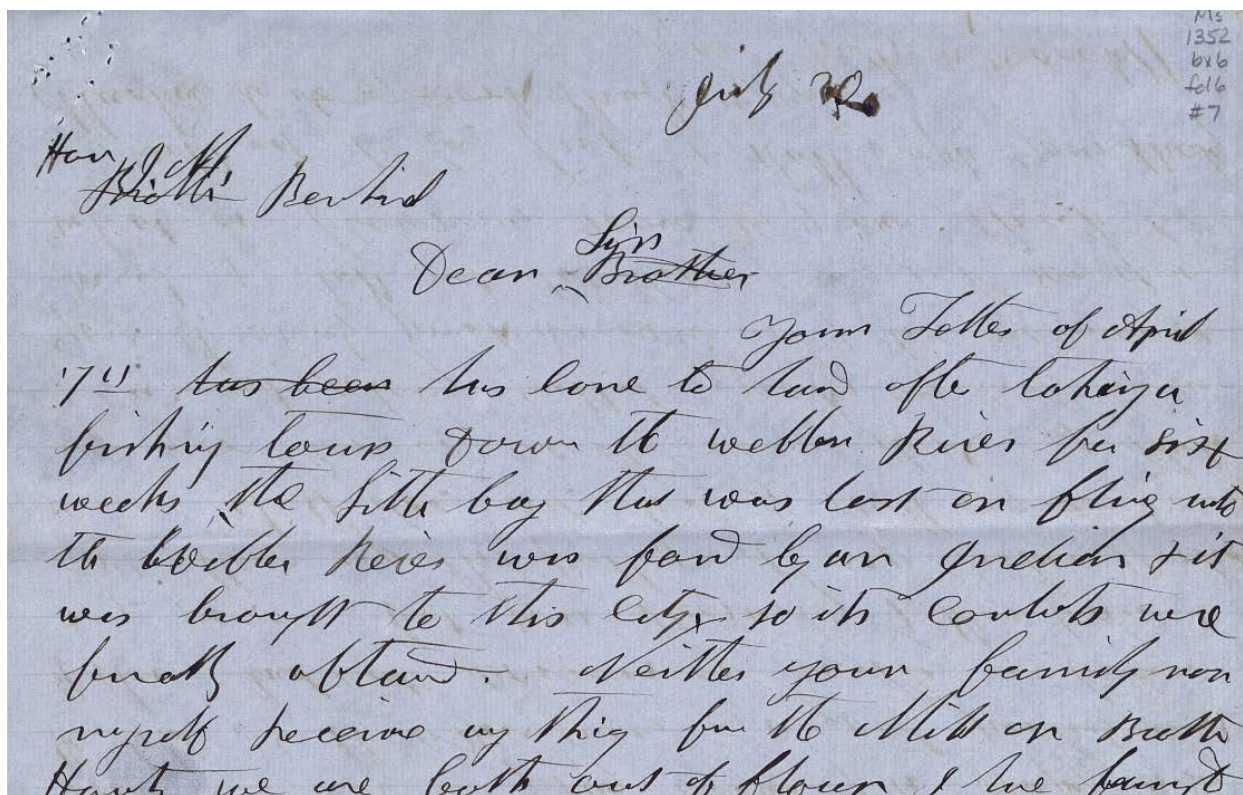 Ms
1352
bx6
fd6
#7
July 20
Hon J M
Brother
Dear Brother Sir
Your Letter of April
17th has been has Come to hand after taking a
fishing tour down the webber River for six
weeks the little bag that was lost or flung into
the Webber River was found by an Indian & it
was brought to this City so its Contents were
finally obtained. Neither your family nor
myself receive any thing from the Mill or Brother
we are both out of flour I have found